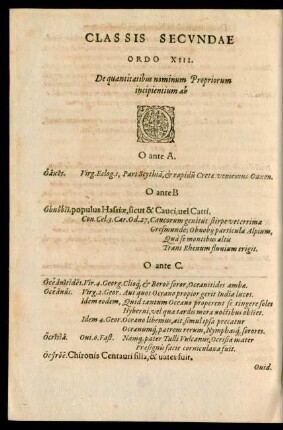 CLASSIS SECVNDAE
ORDO XIII.
De quantitatibus nominum Propriorum
incipientium ab
O
O ante A.
Virg. Eclog. 1, Pars Scythiā, & rapidū Cretæ veniemus Oaxen.
O ante B
populus Hassiæ, sicut & Cauci, vel Catti.
Con. Cel. 3. Car. Od. 27, Caucorum genitus stirpe veterrima
particula Alpium,
Qua se montibus altis
Trans Rhenum fluvium erigit.
O ante C.
Vir. 4. Georg. Clioq́; & Beroë soror, Oceanitides ambæ.
Virg. 2. Geor. Aut quos Oceano propior gerit India lucos.
idem eodem, Quid tantum Oceano properent se tingere soles
Hyberni, vel quæ tardis mora noctibus obstet.
Idem 4. Geor. Oceano libemus, ait, simul ipsa precatur
Oceanumq́; patrem rerum, Nymphasq́; sorores.
Oui. 6. Fast. Namq́; pater Tulli Vulcanus, Ocrisia mater
Præsignis facie corniculana fuit.
Chironis Centauri filia, & vates fuit.
Ouid.